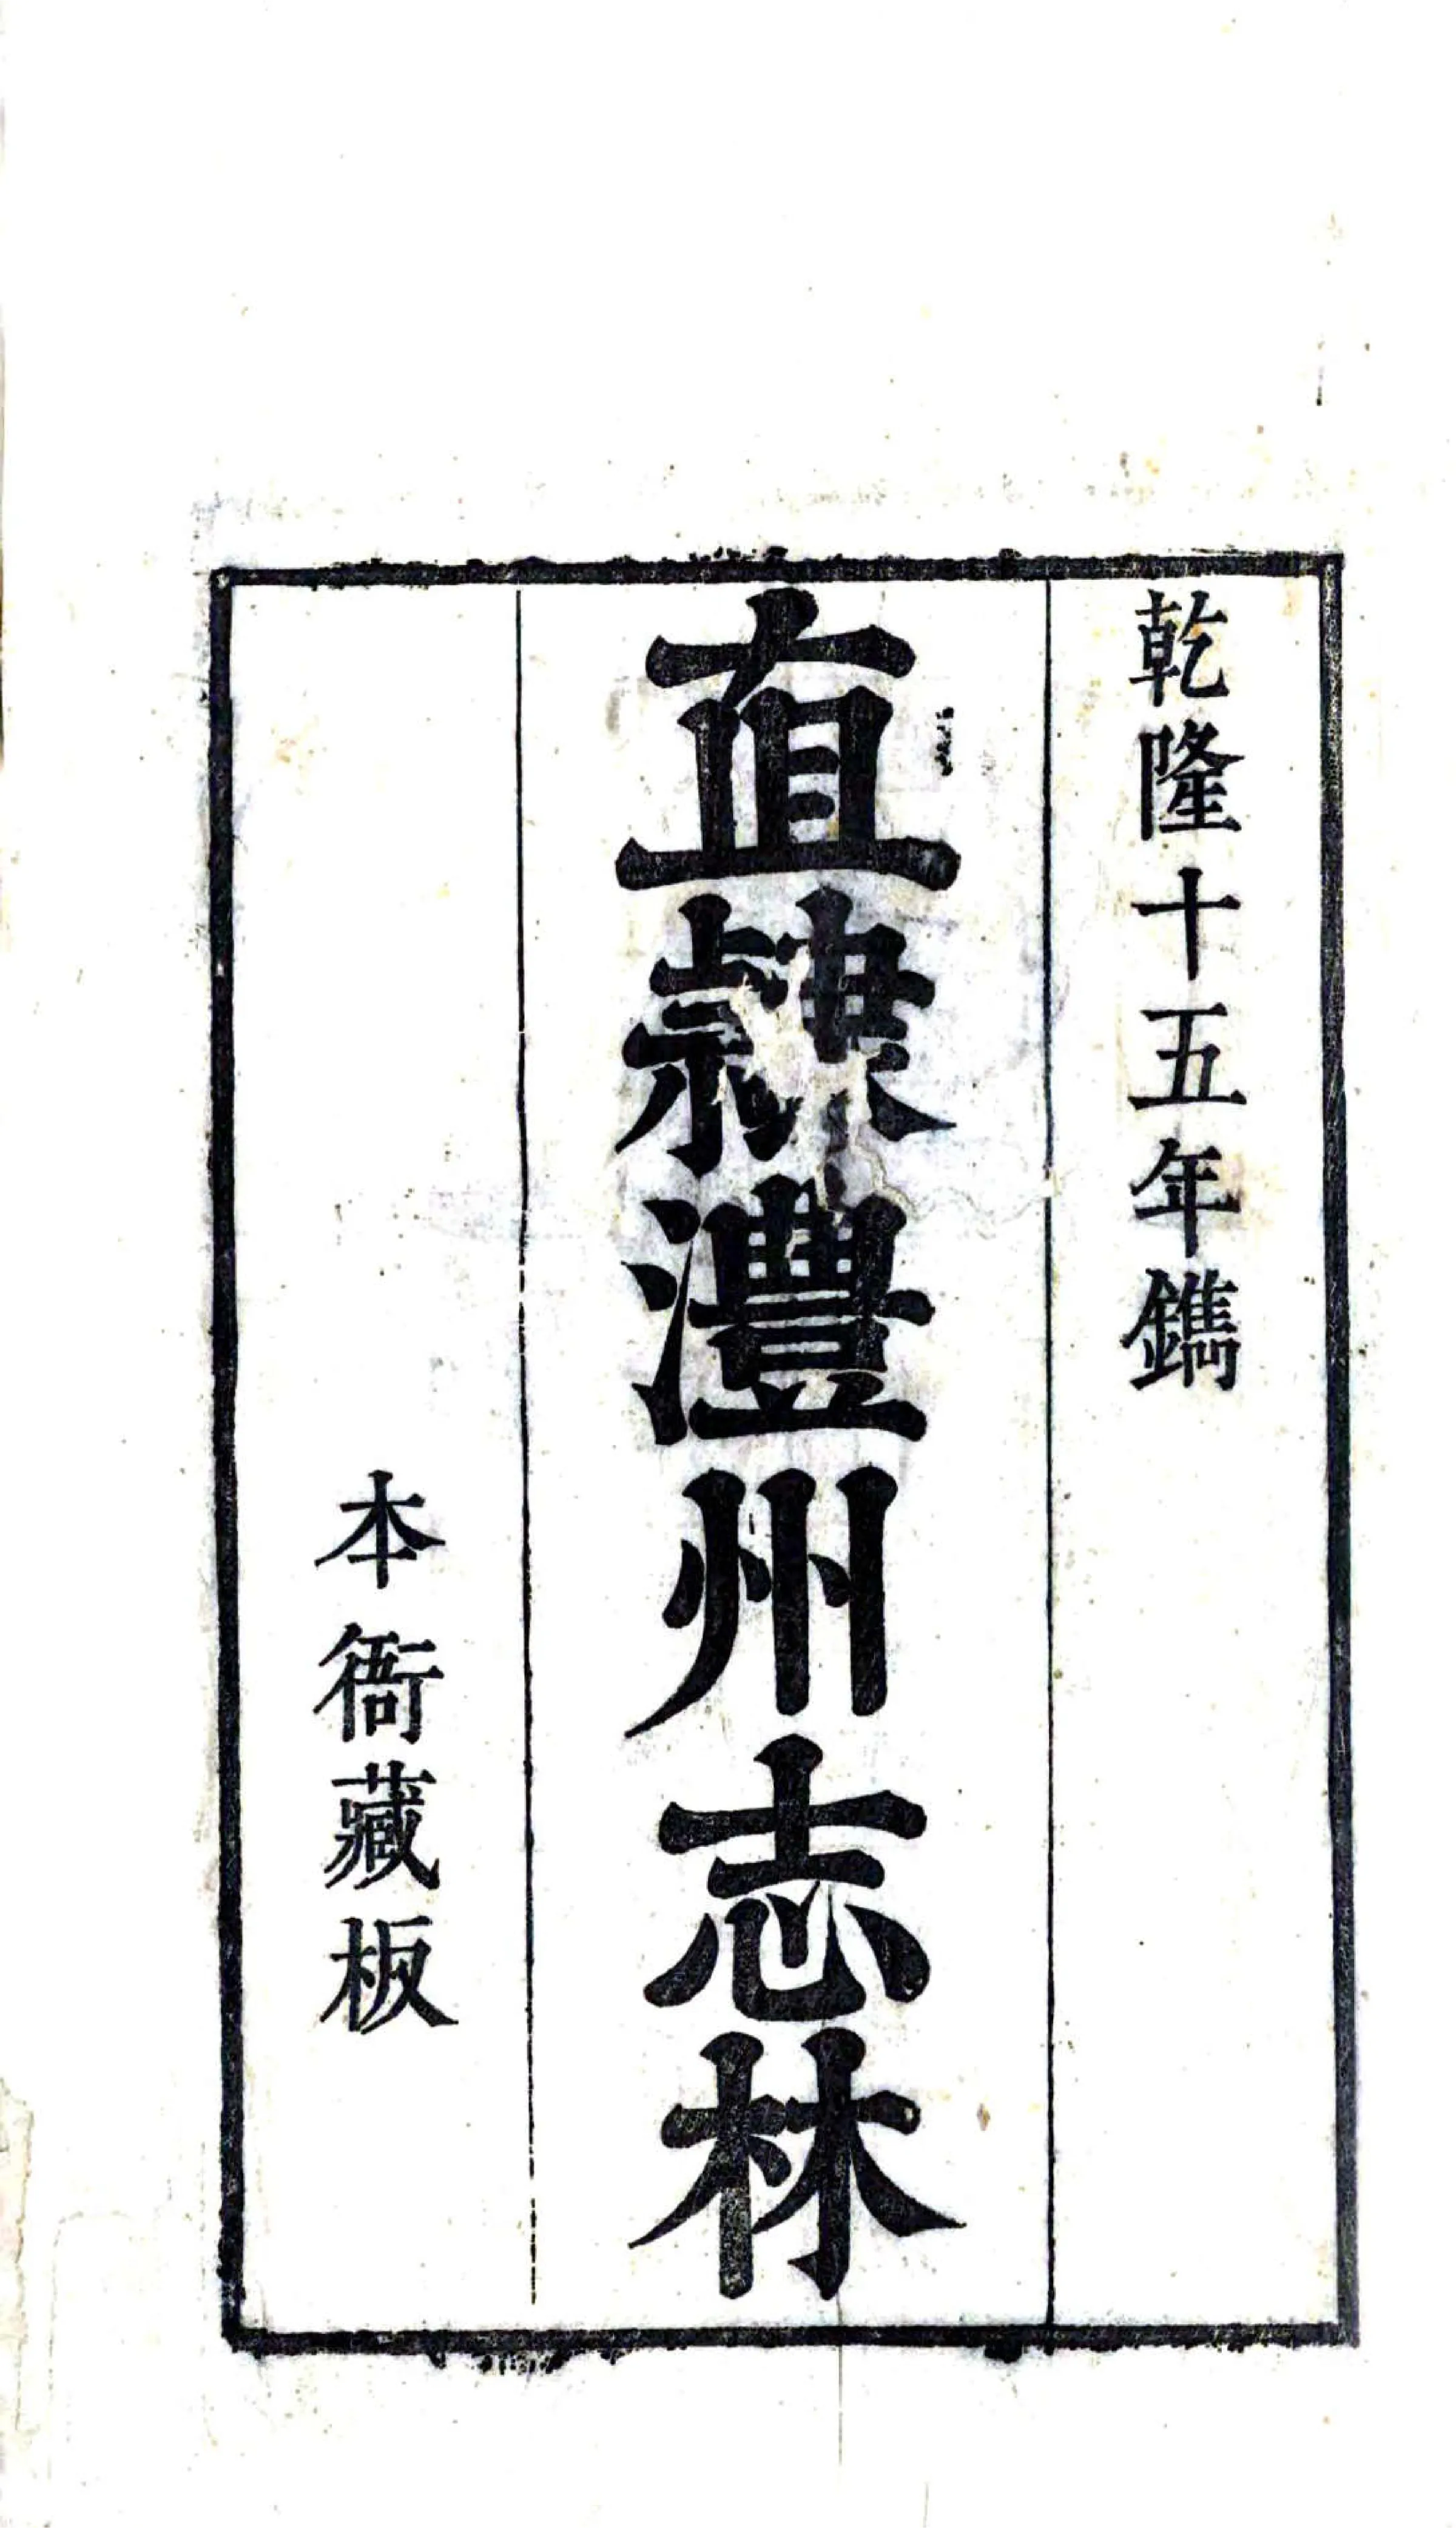 乾隆十五年鐫
直隸澧州志林
本衙藏板